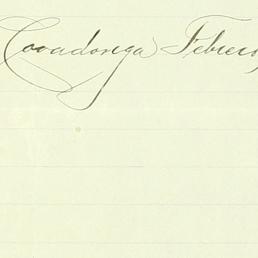 Covadonga Febrero